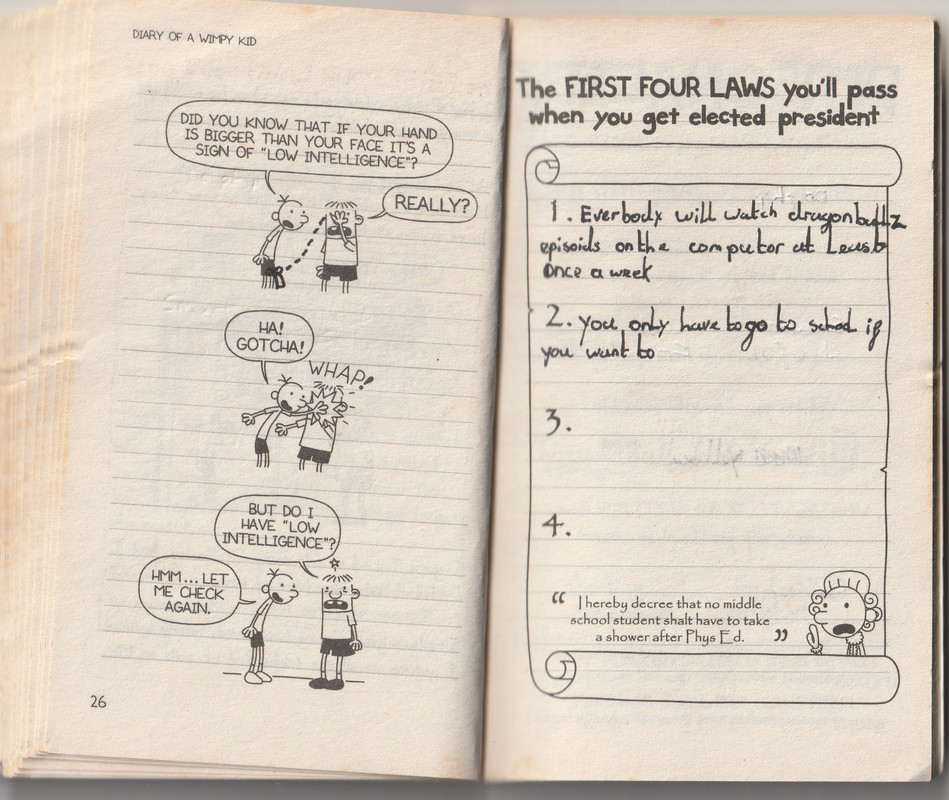 DIARY OF A WIMPY KID
DID YOU KNOW THAT IF YOUR HAND
IS BIGGER THAN YOUR FACE IT'S A
SIGN OF "LOW INTELLIGENCE"?
REALLY?
HA!
GOTCHA!
WHAP!
BUT DO I
HAVE "LOW
INTELLIGENCE"?
HMM... LET
ME CHECK
AGAIN.
26
The FIRST FOUR LAWS you'll pass
when you get elected president
1. Everbody will watch dragonballz
episoids on the computor at Least
Once a week
2. you only have to go to school if
you want to
3.
4.
“ I hereby decree that no middle
school student shalt have to take
a shower after Phys Ed. ”